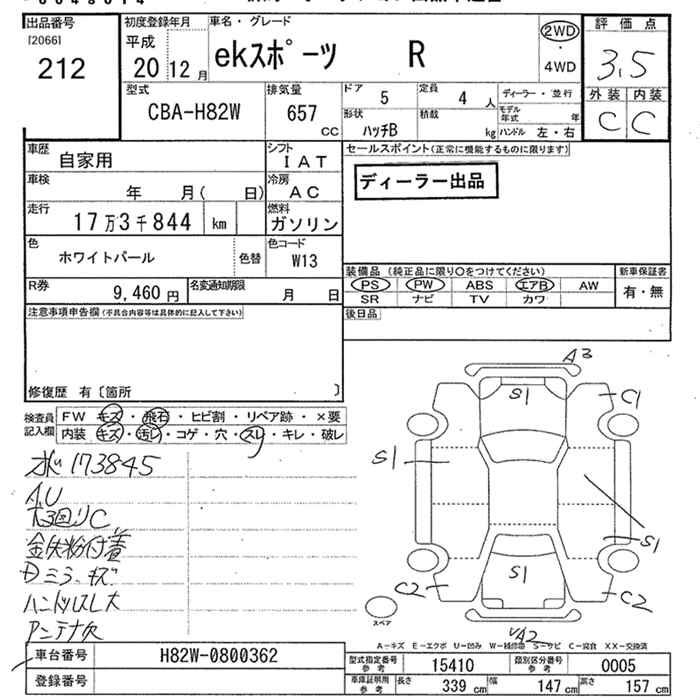 出品番号 初度登録年月 車名・グレード 評価点
[2066] 平成 2WD
212 20 12月 ekスポーツ R ・ 3.5
4WD
型式 排気量 ドア 5 定員 4 人 ディーラー・並行 外装 内装
CBA-H82W 657 cc 形状 ハッチB 積載 kg モデル年式 年 C C
ハンドル 左・右
車歴 自家用 シフト IAT セールスポイント(正常に機能するものに限ります)
車検 年 月( 日) 冷房 AC ディーラー出品
走行 17万3千844 km 燃料 ガソリン
色 ホワイトパール 色替 色コード W13
装備品 (純正品に限り○をつけてください) 新車保証書
R券 9,460 円 名変通知期限 月 日 PS PW ABS エアB AW 有・無
SR ナビ TV カワ
注意事項申告欄(不具合内容等は具体的に記入して下さい) 後日品
修復歴 有〔箇所 〕
検査員記入欄 FW キズ・飛石・ヒビ割・リペア跡・×要
内装 キズ・汚レ・コゲ・穴・スレ・キレ・破レ
173845
A3
S1
C1
AU
S1
C
金失粉付着
S1
Dミラーキズ
S1
C2
C2
ハンドルスレ大
スペア
アンテナ欠
A2
A-キズ E-エクボ U-凹み W-補修跡 S-サビ C-腐食 XX-交換済
車台番号 H82W-0800362 型式指定番号参考 15410 類別区分番号参考 0005
登録番号 車庫証明用参考 長さ 339 cm 幅 147 cm 高さ 157 cm